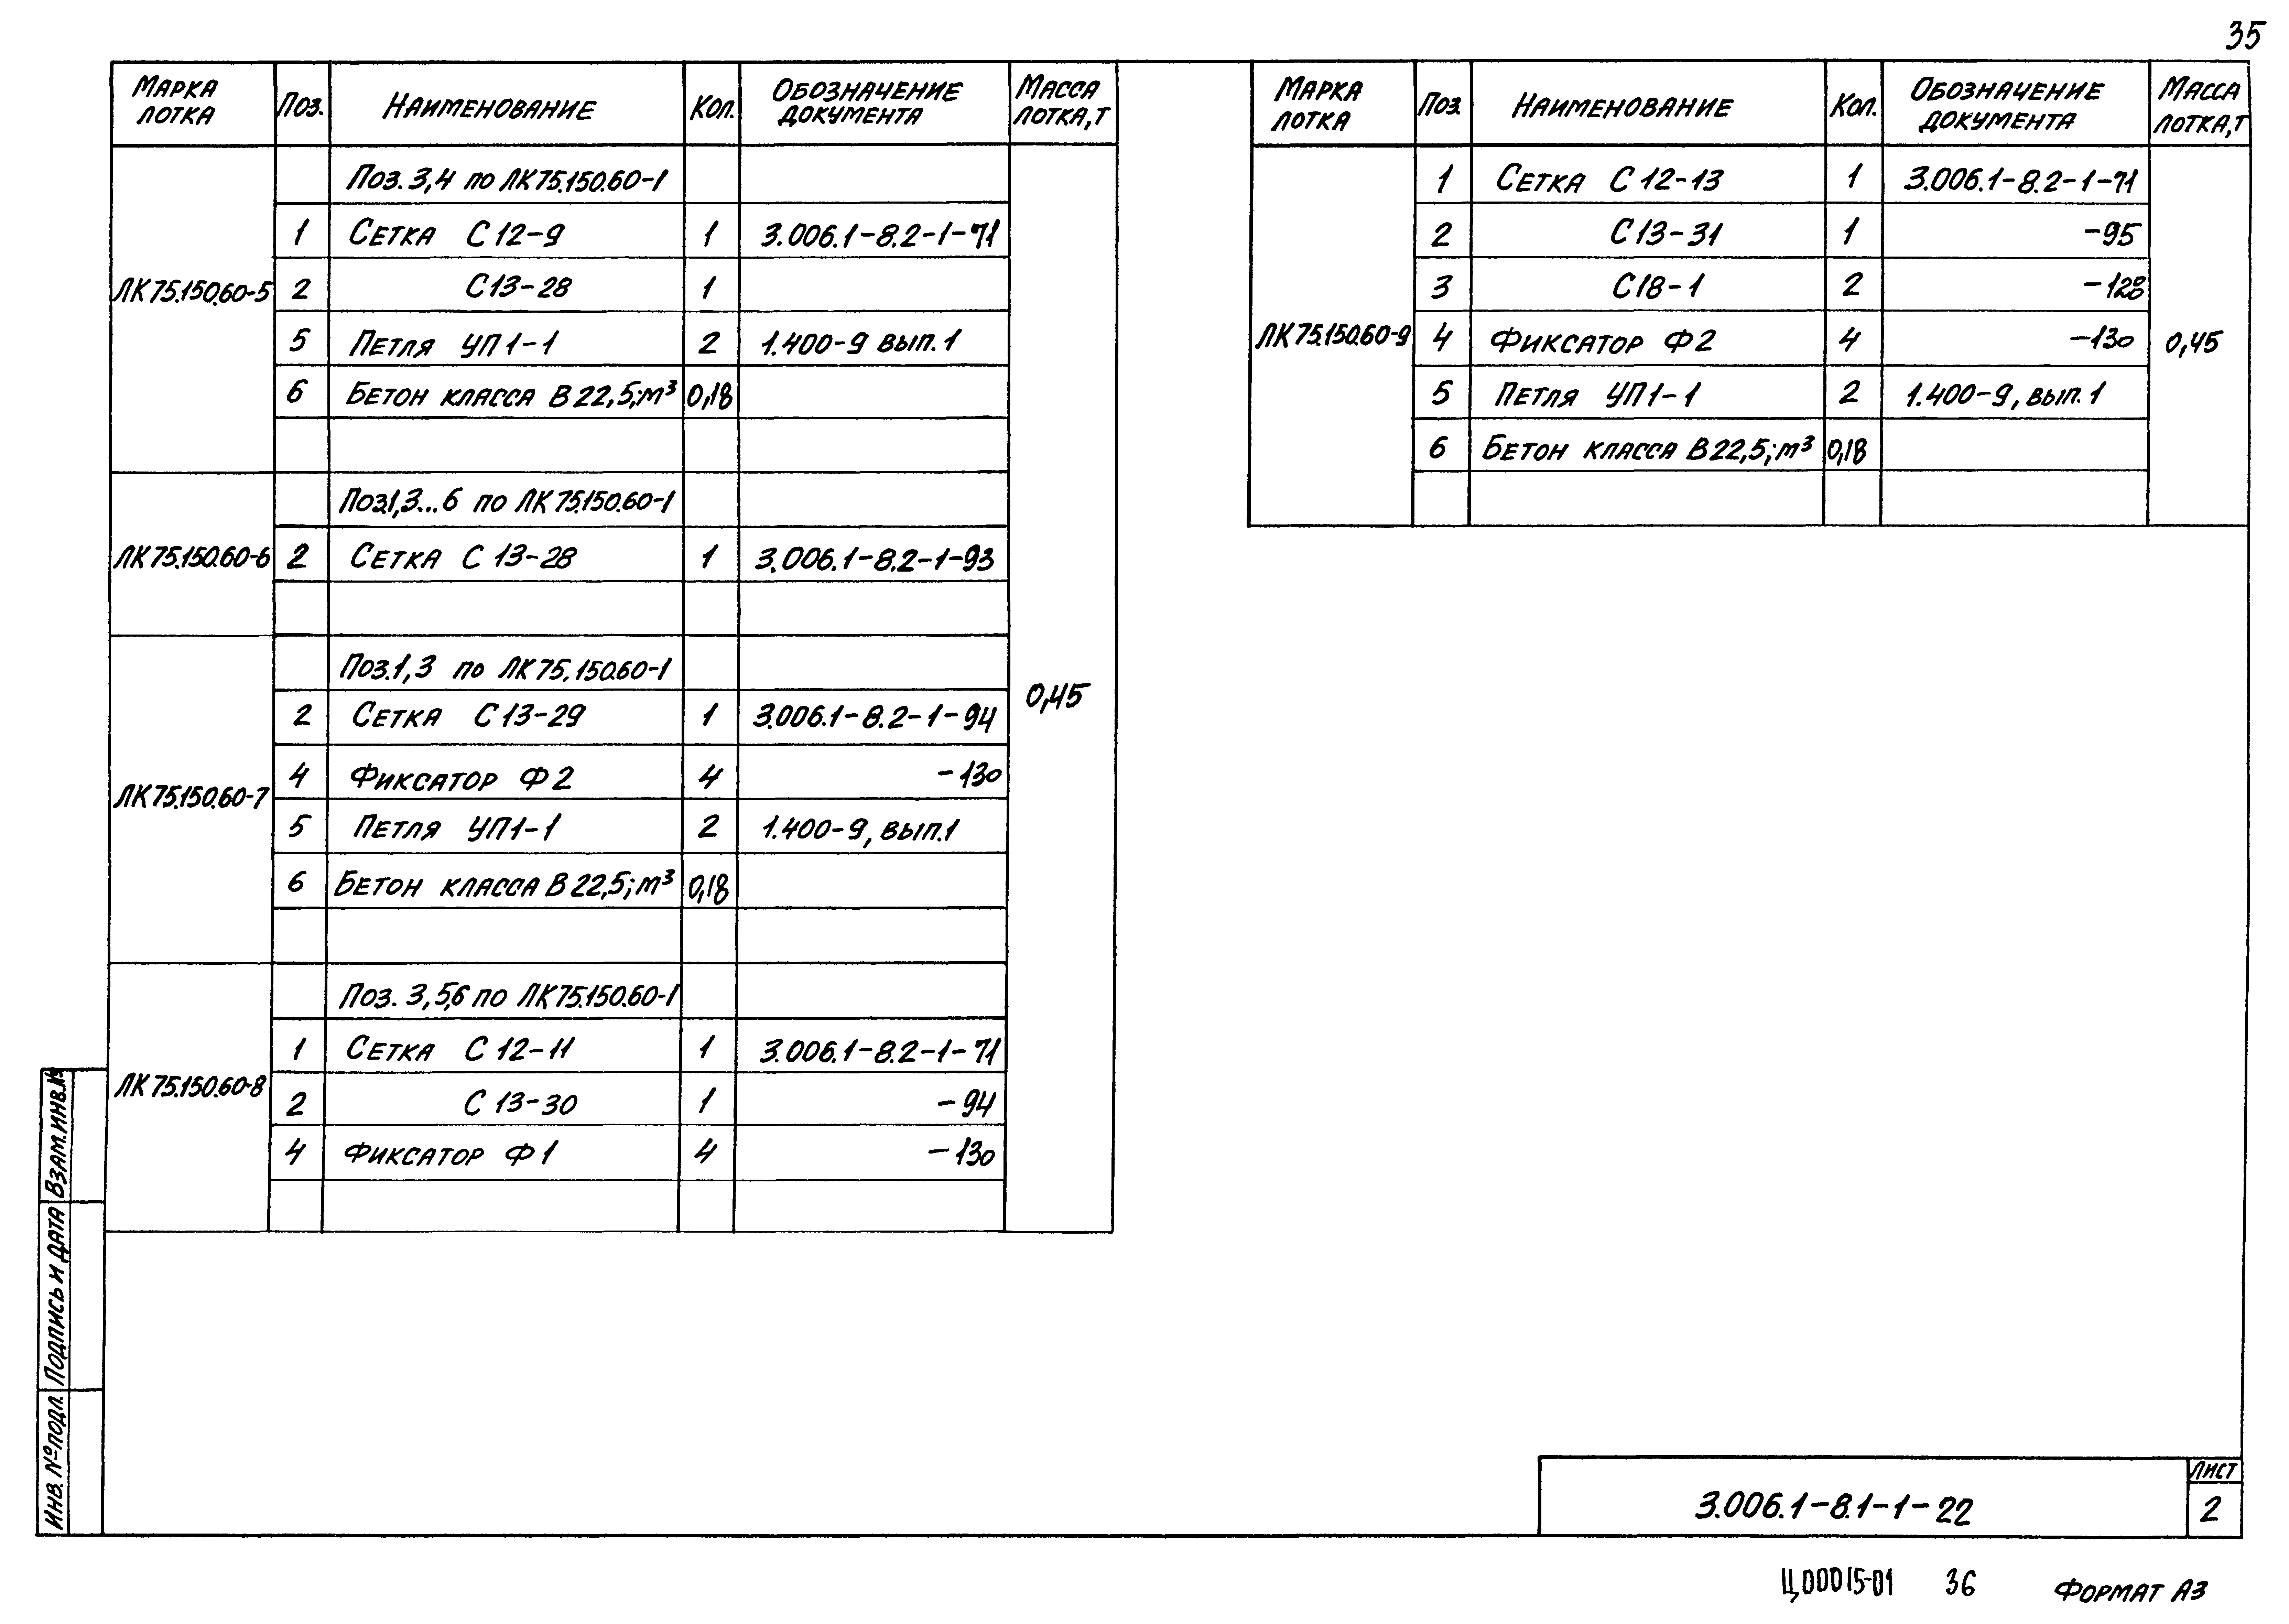 35
Марка лотка Поз. Наименование Кол. Обозначение документа Масса лотка, т
ЛК75.150.60-5
Поз. 3,4 по ЛК75.150.60-1
1 Сетка С12-9 1 3.006.1-8.2-1-71
2 С13-28 1
5 Петля УП1-1 2 1.400-9 вып. 1
6 Бетон класса В22,5; м³ 0,18
ЛК75.150.60-6
Поз.1,3...6 по ЛК75.150.60-1
2 Сетка С13-28 1 3.006.1-8.2-1-93
ЛК75.150.60-7
Поз.1,3 по ЛК75.150.60-1
2 Сетка С13-29 1 3.006.1-8.2-1-94
4 Фиксатор Ф2 4 -130
5 Петля УП1-1 2 1.400-9, вып.1
6 Бетон класса В22,5; м³ 0,18
ЛК75.150.60-8
Поз. 3,5,6 по ЛК75.150.60-1
1 Сетка С12-11 1 3.006.1-8.2-1-71
2 С13-30 1 -94
4 Фиксатор Ф1 4 -130
0,45
Марка лотка Поз. Наименование Кол. Обозначение документа Масса лотка, т
ЛК75.150.60-9
1 Сетка С12-13 1 3.006.1-8.2-1-71
2 С13-31 1 -95
3 С18-1 2 -128
4 Фиксатор Ф2 4 -130
5 Петля УП1-1 2 1.400-9, вып. 1
6 Бетон класса В22,5; м³ 0,18
0,45
Взам. инв. №
Подпись и дата
Инв. № подл.
3.006.1-8.1-1-22
Лист
2
Ц00015-01 36 Формат А3